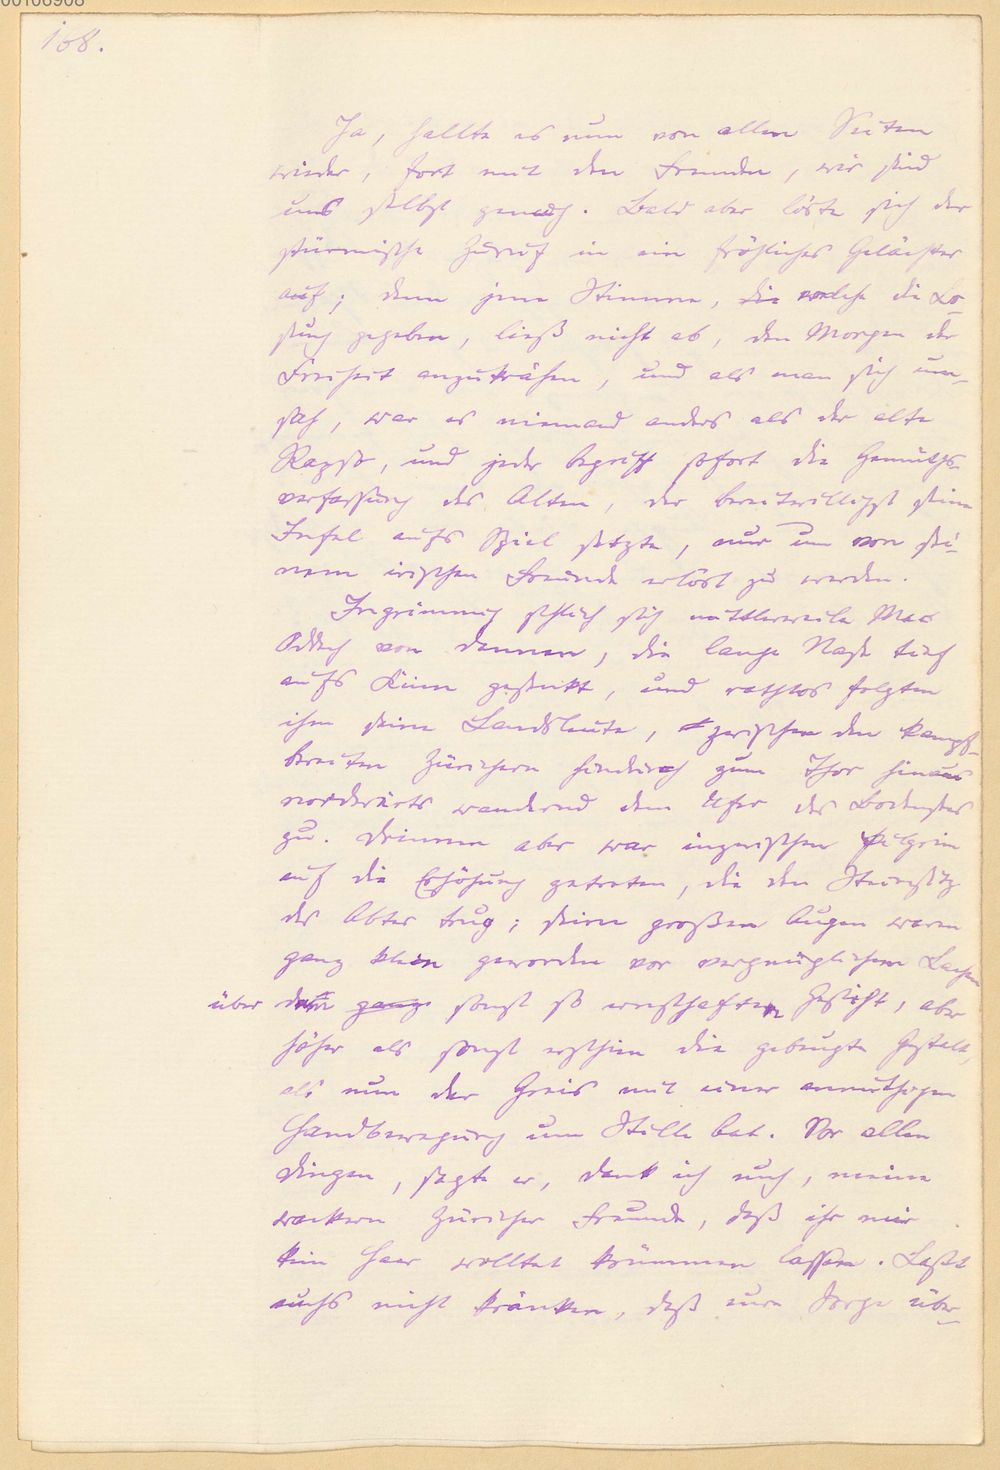 00106908
108.
Ja, hallte es nun von allen Seiten
wieder, fort mit den Fremden, wir sind
uns selbst genug. Bald aber löste sich der
stürmische Zuruf in ein fröhliches Gelächter
auf; denn jene Stimme, die welche die Lo-
sung gegeben, ließ nicht ab, den Morgen der
Freiheit anzukrähen, und als man sich um-
sah, war es niemand anders als der alte
und jeder begriff sofort die Gemüths-
verfassung des Alten, der bereitwilligst seine
Insel aufs Spiel setzte, nur um von sei-
nem irischen Freunde erlöst zu werden.
Ingrimmig schlich sich mittlerweile Mac
von dannen, die lange Nase tief
aufs Kinn gesenkt, und rathlos folgten
ihm seine Landsleute, zwischen den kampf-
bereiten Zürichern hindurch zum Thor hinaus
nordwärts wandernd dem Ufer des Bodensees
zu. Drinnen aber war inzwischen Pilgrim
auf die Erhöhung getreten, die den Steinsitz
des Abtes trug; seine großen Augen waren
ganz klein geworden vor vergnüglichem Lachen
über dem ganz sonst so ernsthaften Gesicht, aber
höher als sonst erschien die gebeugte Gestalt,
als nun der Greis mit einer anmuthigen
Handbewegung um Stille bat. Vor allen
Dingen, sagte er, dank ich euch, meine
wackern Züricher Freunde, daß ihr mir
kein Haar wolltet krümmen lassen. Laßt
euchs nicht kränken, daß eure Sorge über-